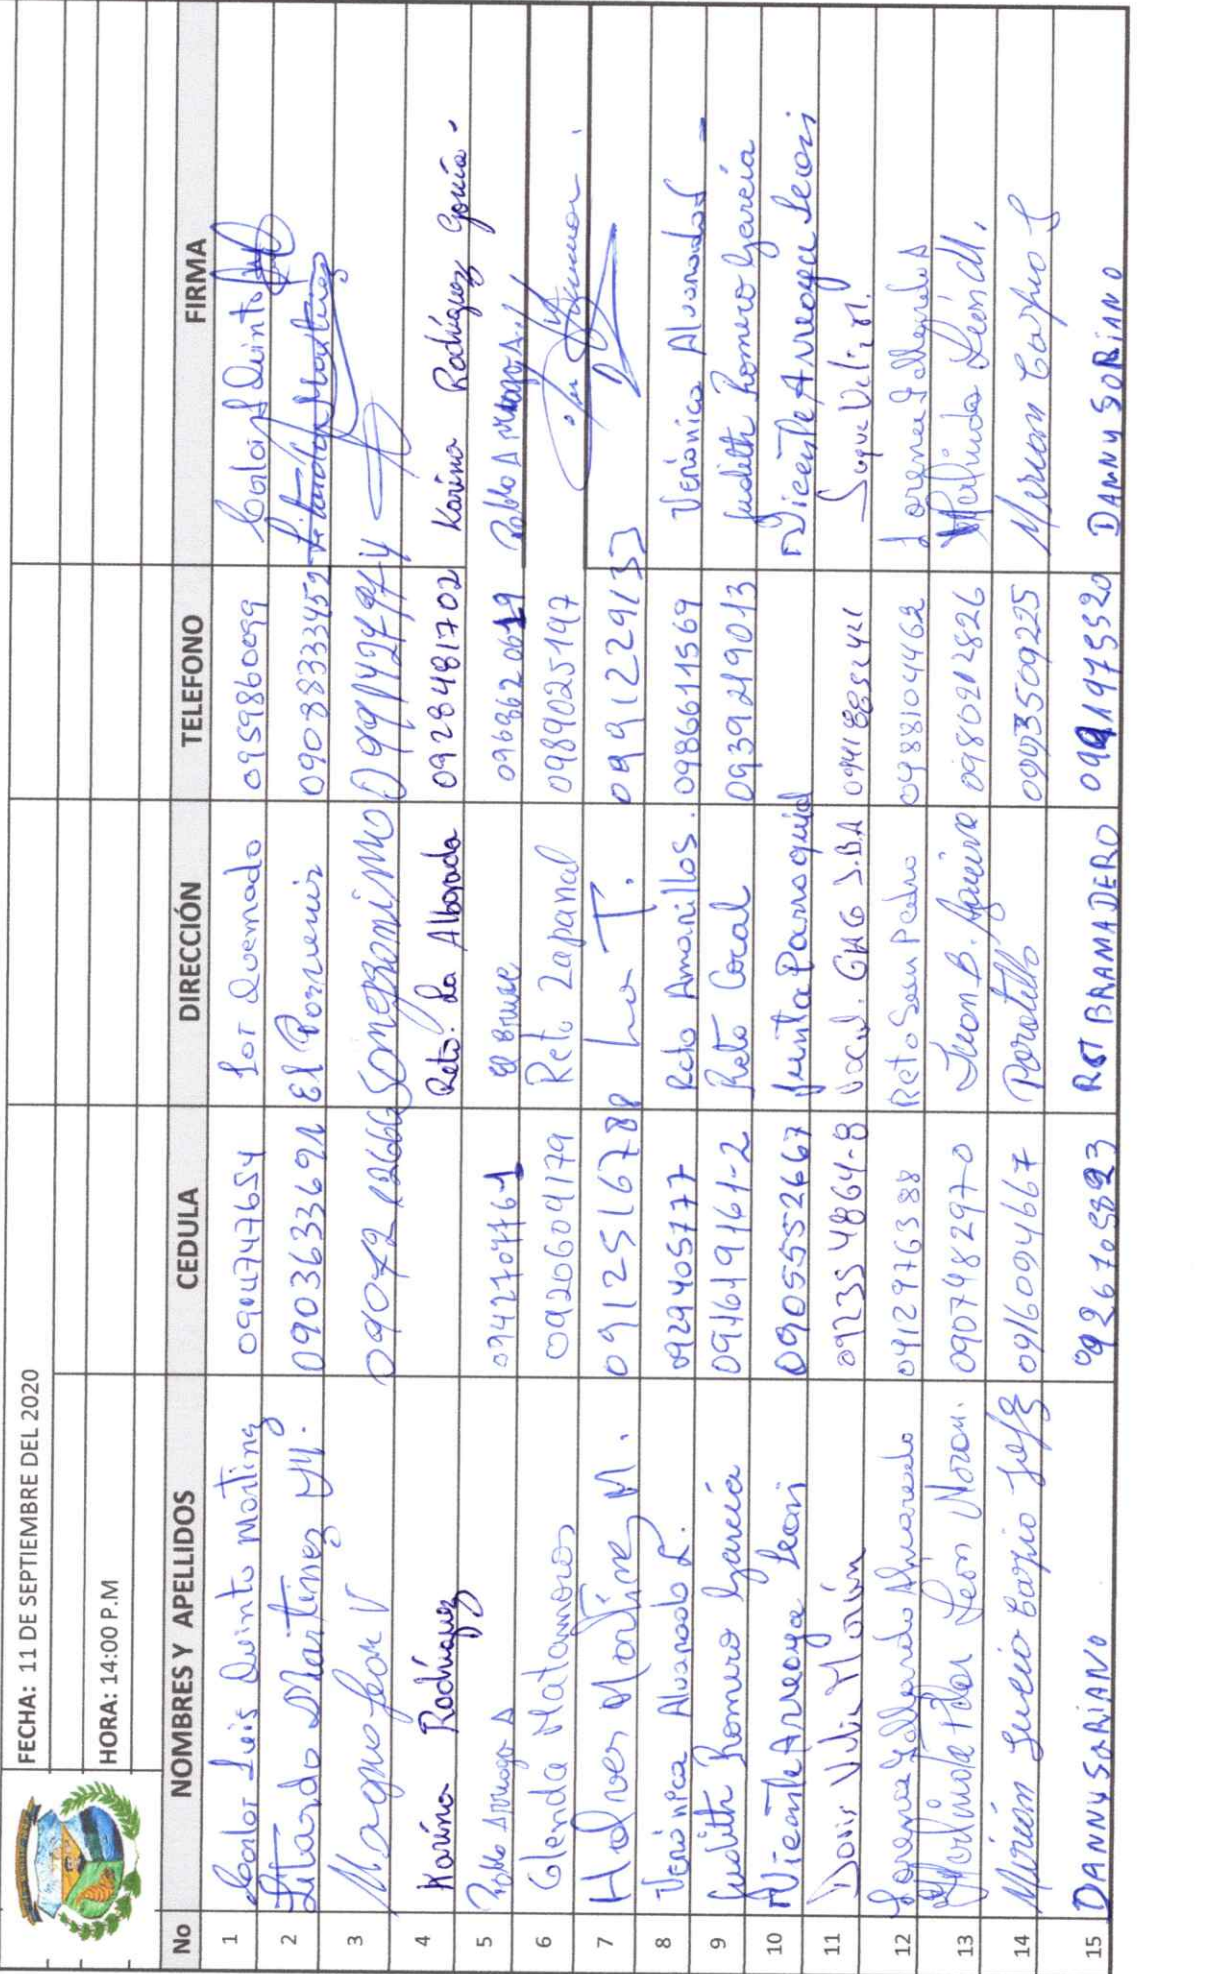 FECHA: 11 DE SEPTIEMBRE DEL 2020
HORA: 14:00 P.M
No NOMBRES Y APELLIDOS CEDULA DIRECCIÓN TELEFONO FIRMA
1 Carlos Luis Quinto Martinez 0904747654 Lot Quemado 0959860099 Carlos Quinto
2 Litardo Martinez M. El Porvenir 0908333459 Litardo Martinez
3 Magno Leon V
4 Karina Rodríguez Rcto. La Alborada 0928481702 Karina Rodríguez Gonía.
5 Pablo Arriaga A El Bruce Pablo Arriaga A
6 Glenda Matamoros 0920609179 Rcto Zapanal 0989025197
7 Martinez M. 0912516788 La T. 0991229133
8 Verónica Alvarado L. 0929405777 Rcto Amarillos. 0986611569 Verónica Alvarado
9 Judith Romero García 091619161-2 Rcto Cocal 0939219013 Judith Romero García
10 Vicente Arreaga León 0905552667 Junta Parroquial Vicente Arreaga León
11 Morán 092354864-8 Vocal. GAG J.B.A
12 Lorena Gallardo Alvarado 0912976388 Rcto San Pedro 0988104462 Lorena Gallardo A
13 León Moran. 090748297-0 Juan B. Aguirre 0980212826
14 Miriam Lucio Carpio 0916094667 Porotillo 0993509225 Miriam Carpio
15 DANNY SORIANO RCT BRAMADERO DANNY SORIANO